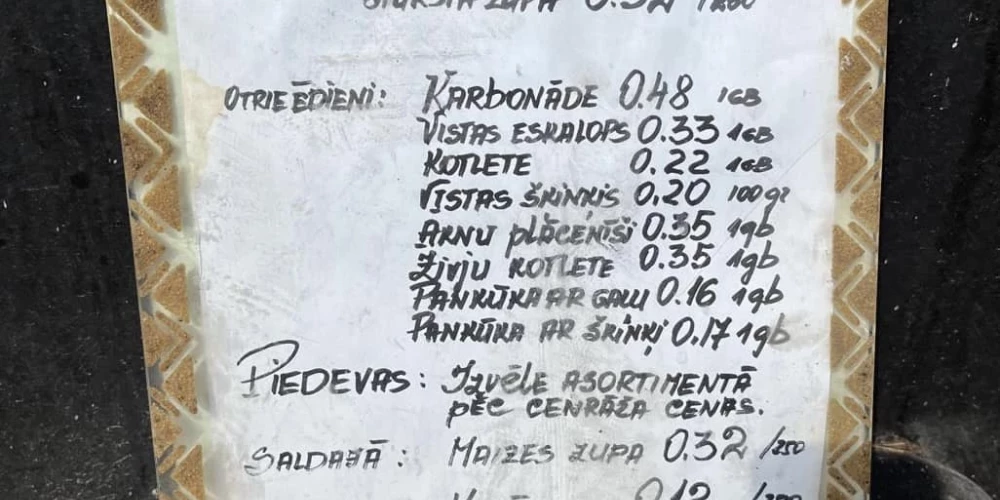 ZUPA 0.32 /200
OTRIE ĒDIENI: KARBONĀDE 0.48 1GB
VISTAS ESKALOPS 0.33 1GB
KOTLETE 0.22 1GB
VISTAS ŠKINĶIS 0,20 100gr
AKNU plāceņīši 0.35 1gb
Zivju KOTLETE 0.35 1gb
PANKŪKA AR GAĻU 0.16 1gb
PANKŪKA AR ŠĶINĶI 0.17 1gb
PIEDEVAS: Izvēle ASORTIMENTĀ
pēc CENRĀŽA CENAS.
SALDAJĀ: MAIZES ZUPA 0.32 /250
0.12